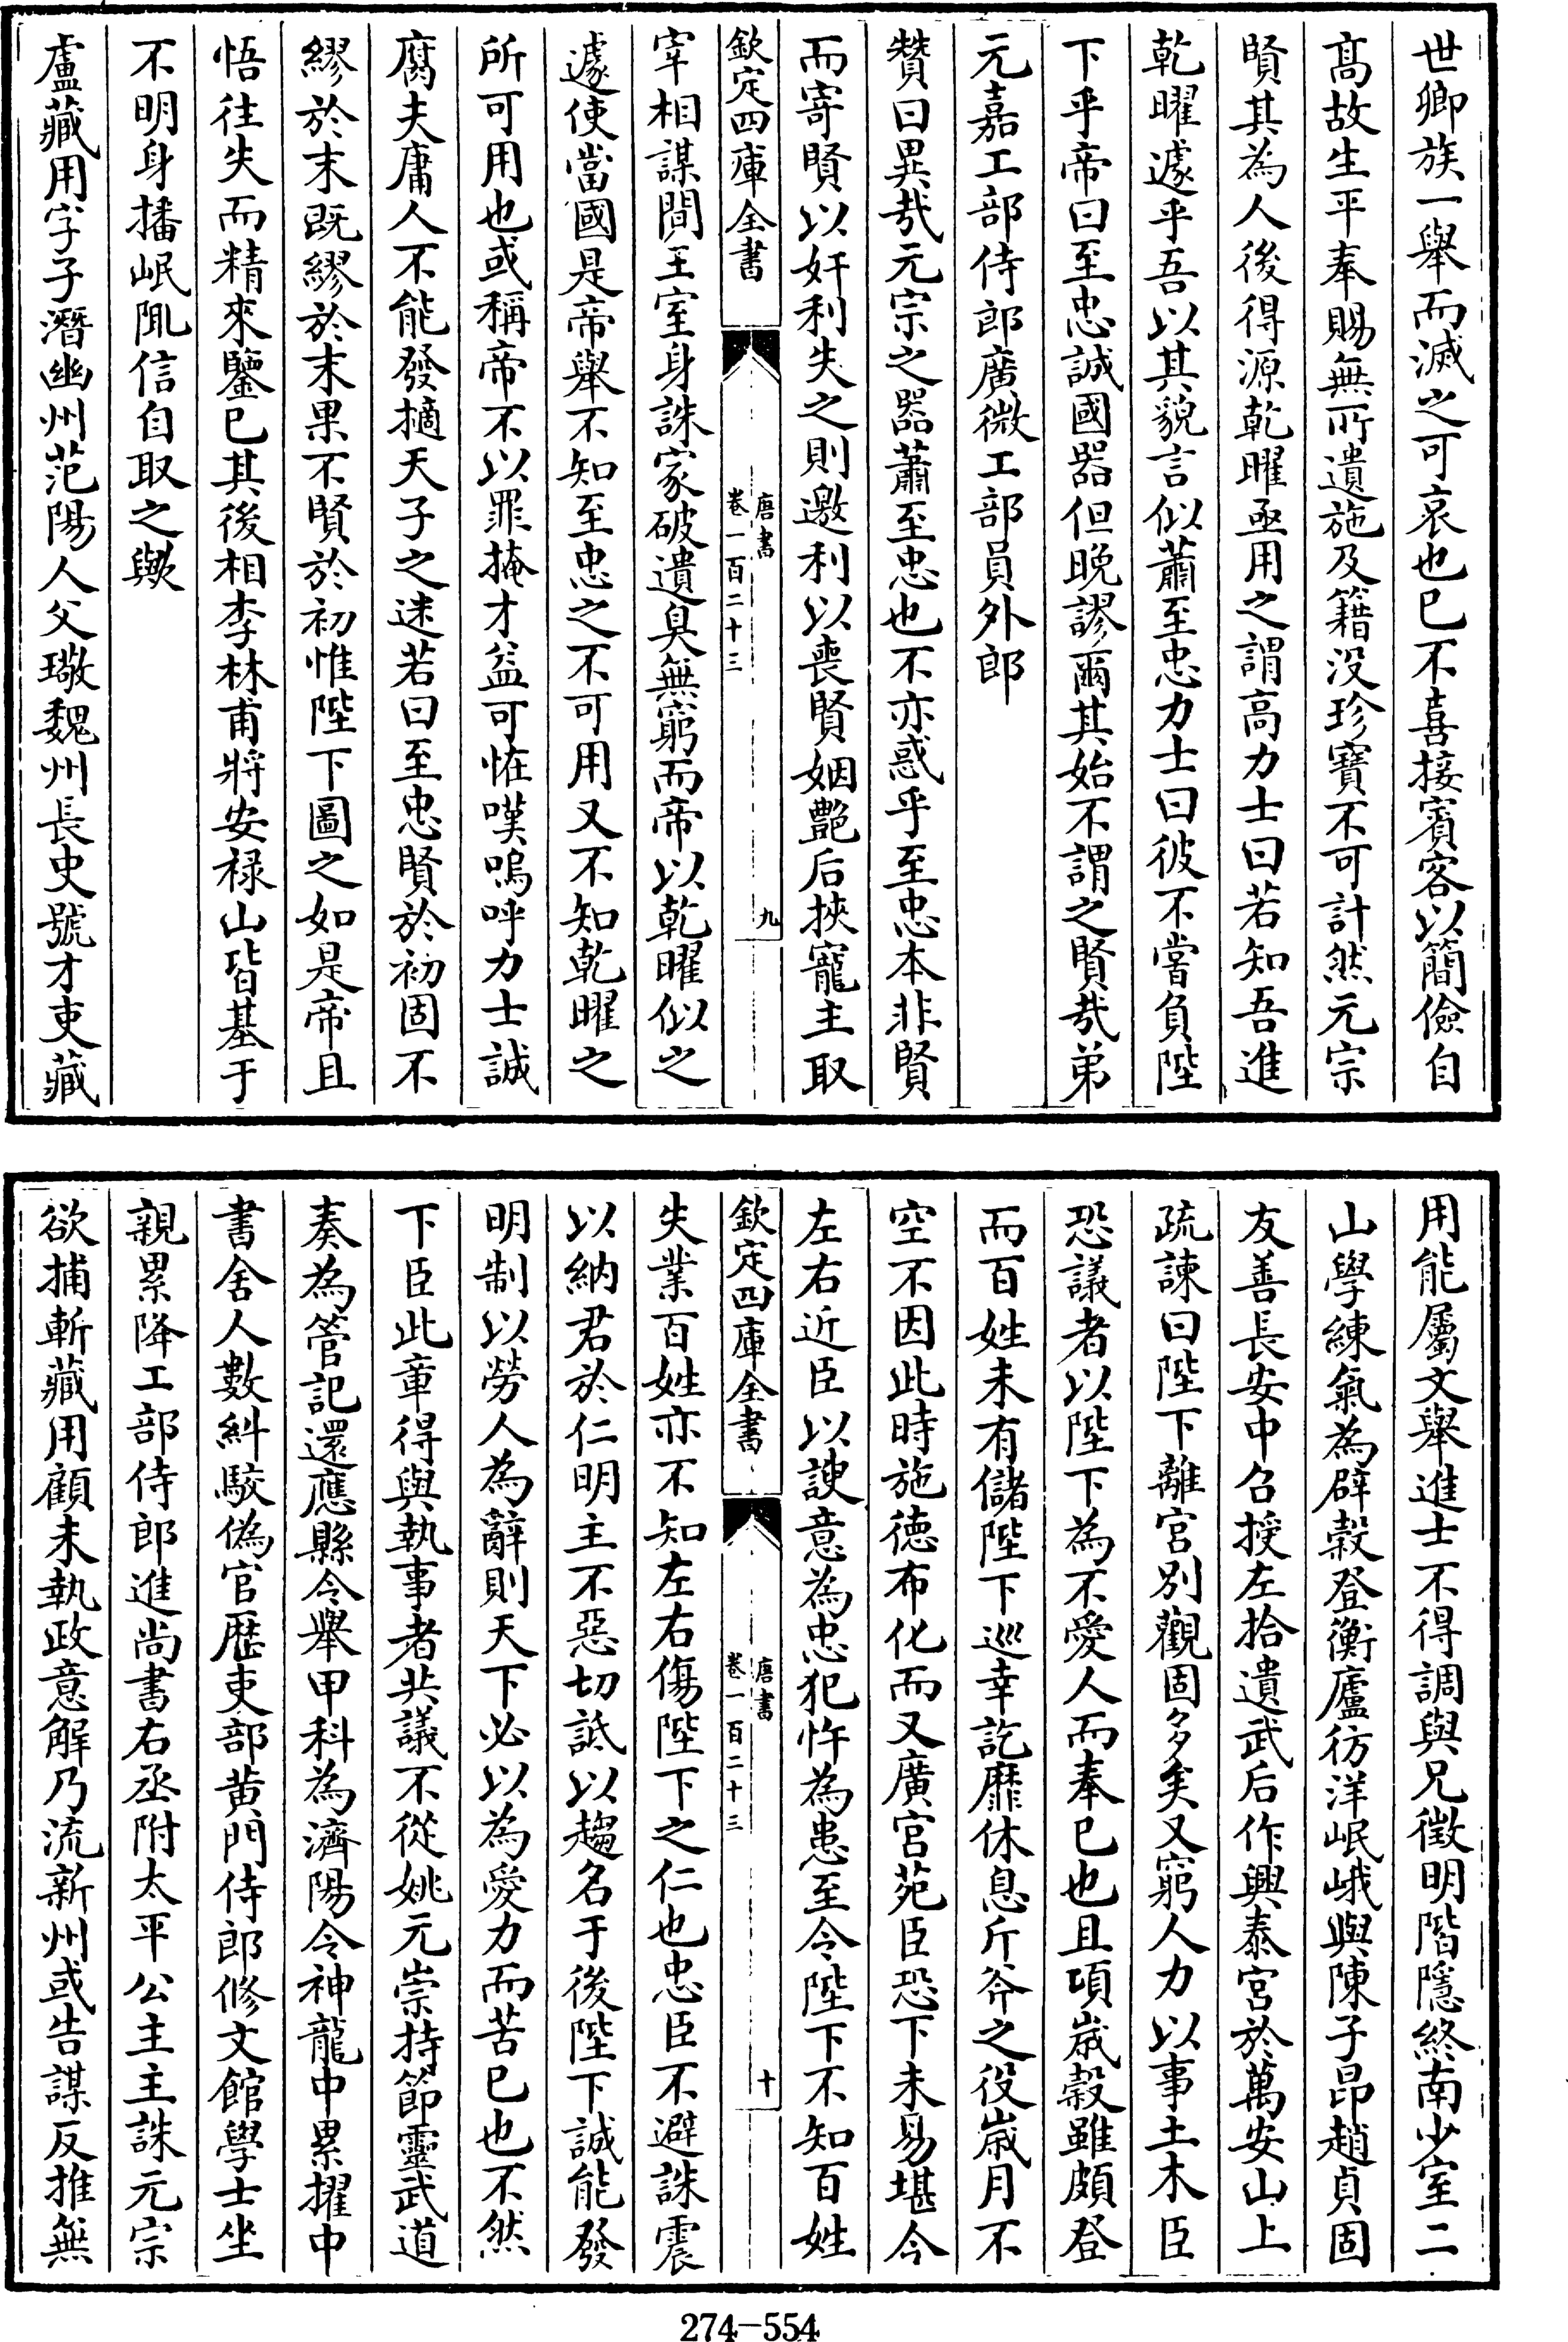 世卿族一舉而滅之可哀也已不喜接賓客以簡儉自
髙故生平奉賜無所遺施及籍没珍寶不可計然元宗
賢其為人後得源乾曜亟用之謂高力士曰若知吾進
乾曜遽乎吾以其貌言似蕭至忠力士曰彼不嘗負陛
下乎帝曰至忠誠國器但晚謬爾其始不謂之賢哉弟
元嘉工部侍郎廣微工部員外郎
贊曰異哉元宗之器蕭至忠也不亦惑乎至忠本非賢
而寄賢以奸利失之則邀利以喪賢姻艷后挾寵主取
欽定四庫全書
唐書
卷一百二十三
九
宰相謀間王室身誅家破遺臭無窮而帝以乾曜似之
遽使當國是帝舉不知至忠之不可用又不知乾曜之
所可用也或稱帝不以罪掩才益可恠嘆嗚呼力士誠
腐夫庸人不能發擿天子之迷若曰至忠賢於初固不
繆於末既繆於末果不賢於初惟陛下圖之如是帝且
悟往失而精來鑒已其後相李林甫將安禄山皆基于
不明身播岷陬信自取之歟
盧藏用字子潛幽州范陽人父璥魏州長史號才吏藏
用能屬文舉進士不得調與兄徵明偕隱終南少室二
山學練氣為辟穀登衡廬彷洋岷峨與陳子昂趙貞固
友善長安中召授左拾遺武后作興泰宮於萬安山上
疏諫曰陛下離宫别觀固多矣又窮人力以事土木臣
恐議者以陛下為不愛人而奉已也且頃歲穀雖頗登
而百姓未有儲陛下巡幸訖靡休息斤斧之役歲月不
空不因此時施德布化而又廣宫苑臣恐下未易堪今
左右近臣以諛意為忠犯忤為患至令陛下不知百姓
欽定四庫全書
唐書
卷一百二十三
十
失業百姓亦不知左右傷陛下之仁也忠臣不避誅震
以納君於仁明主不惡切詆以趨名于後陛下誠能發
明制以勞人為辭則天下必以為愛力而苦已也不然
下臣此章得與執事者共議不從姚元崇持節靈武道
奏為管記還應縣令舉甲科為濟陽令神龍中累擢中
書舍人數糾駮偽官歴吏部黄門侍郎修文館學士坐
親累降工部侍郎進尚書右丞附太平公主主誅元宗
欲捕斬藏用顧未執政意解乃流新州或告謀反推無
274-554